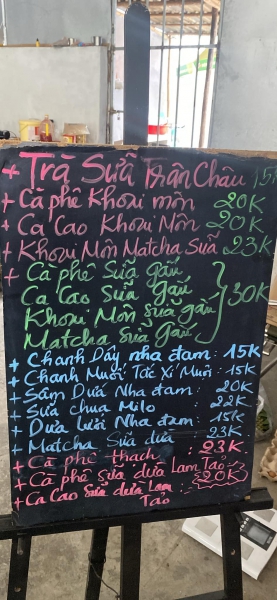 + Trà Sữa Trân Châu 15K
+ Cà phê Khoai môn 20K
+ Ca Cao Khoai Môn 20K
+ Khoai Môn Matcha Sữa 23K
+ Cà phê Sữa gấu
Ca Cao Sữa Gấu
Khoai Môn Sữa gấu } 30K
Matcha Sữa Gấu
+ Chanh Dây nha đam : 15K
+ Chanh Muối Tắc Xí Muội : 15K
+ Sâm Dứa Nha đam : 20K
+ Sữa Chua Milo : 22K
+ Dưa lưới Nha đam : 15K
+ Matcha Sữa dừa : 23K
+ Cà phê thạch : 23K
+ Cà phê sữa dừa Lam Tảo
+ Ca Cao Sữa dừa Lam Tảo } 20K